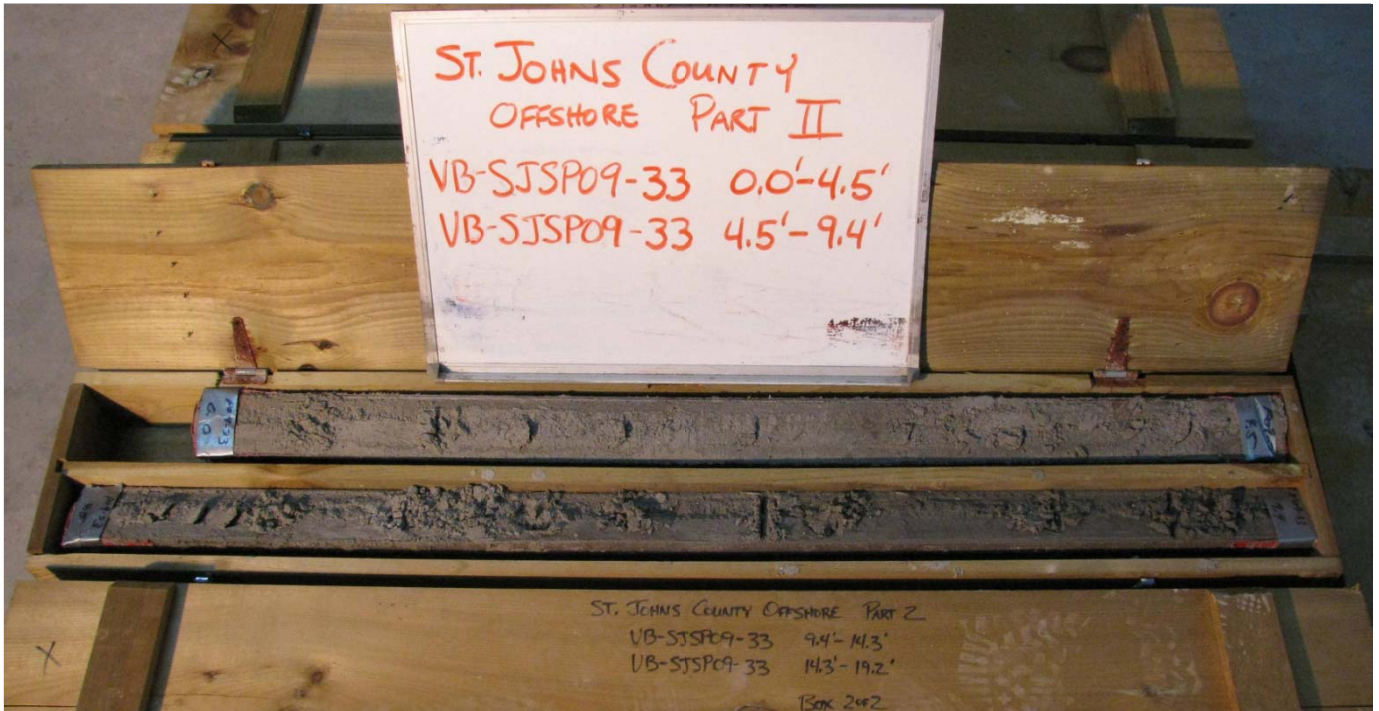 ST. JOHNS COUNTY
OFFSHORE PART II
VB-SJSP09-33 0.0'-4.5'
VB-SJSP09-33 4.5'-9.4'
ST. JOHNS COUNTY OFFSHORE PART 2
VB-SJSP09-33 9.4'-14.3'
VB-SJSP09-33 14.3'-19.2'
BOX 2 OF 2